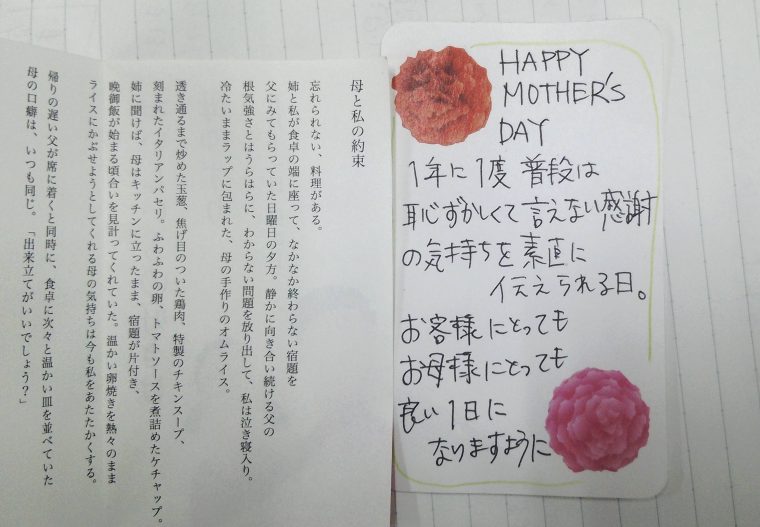 母と私の約束
忘れられない、料理がある。
姉と私が食卓の端に座って、なかなか終わらない宿題を
父にみてもらっていた日曜日の夕方。静かに向き合い続ける父の
根気強さとはうらはらに、わからない問題を放り出して、私は泣き寝入り。
冷たいままラップに包まれた、母の手作りのオムライス。
透き通るまで炒めた玉葱、焦げ目のついた鶏肉、特製のチキンスープ、
刻まれたイタリアンパセリ。ふわふわの卵、トマトソースを煮詰めたケチャップ。
姉に聞けば、母はキッチンに立ったまま、宿題が片付き、
晩御飯が始まる頃合いを見計ってくれていた。温かい卵焼きを熱々のまま
ライスにかぶせようとしてくれる母の気持ちは今も私をあたたかくする。
帰りの遅い父が席に着くと同時に、食卓に次々と温かい皿を並べていた
母の口癖は、いつも同じ。「出来立てがいいでしょう?」
HAPPY
MOTHER'S
DAY
1年に1度 普段は
恥ずかしくて言えない感謝
の気持ちを素直に
伝えられる日。
お客様にとっても
お母様にとっても
良い1日に
なりますように